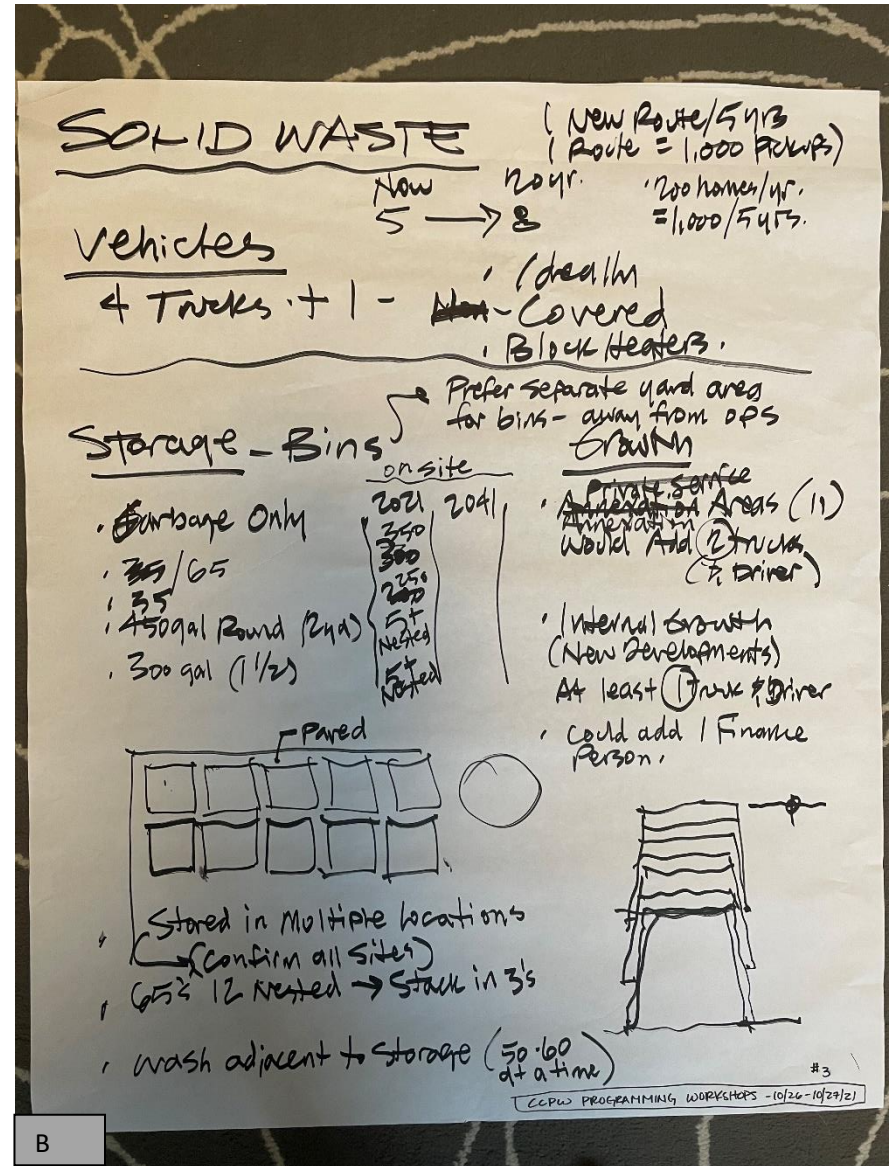 SOLID WASTE
1 New Route/5 yrs
(1 Route = 1,000 Pickups)
Now 20 yr.
5 → 8
· 200 homes/yr.
= 1,000/5 yrs.
Vehicles
4 Trucks + 1 -
· Ideally
- Covered
· Block Heaters.
Prefer separate yard area
for bins - away from ops
Storage - Bins
on site
2021 2041
· Garbage Only
350
· /65
· 35
250
· 450gal Round (2yd)
5+
Nested
· 300 gal (1 1/2)
5+
Nested
Growth
Private Service
· Annexation Areas (11)
Would Add 2 Trucks
(& Driver)
· Internal Growth
(New Developments)
At least 1 Truck & Driver
· Could add 1 Finance
Person.
Paved
· Stored in Multiple Locations
(Confirm all Sites)
· 65's 12 Nested → Stack in 3's
· Wash adjacent to Storage (50-60
at a time)
#3
CCPW PROGRAMMING WORKSHOPS - 10/26-10/27/21
B